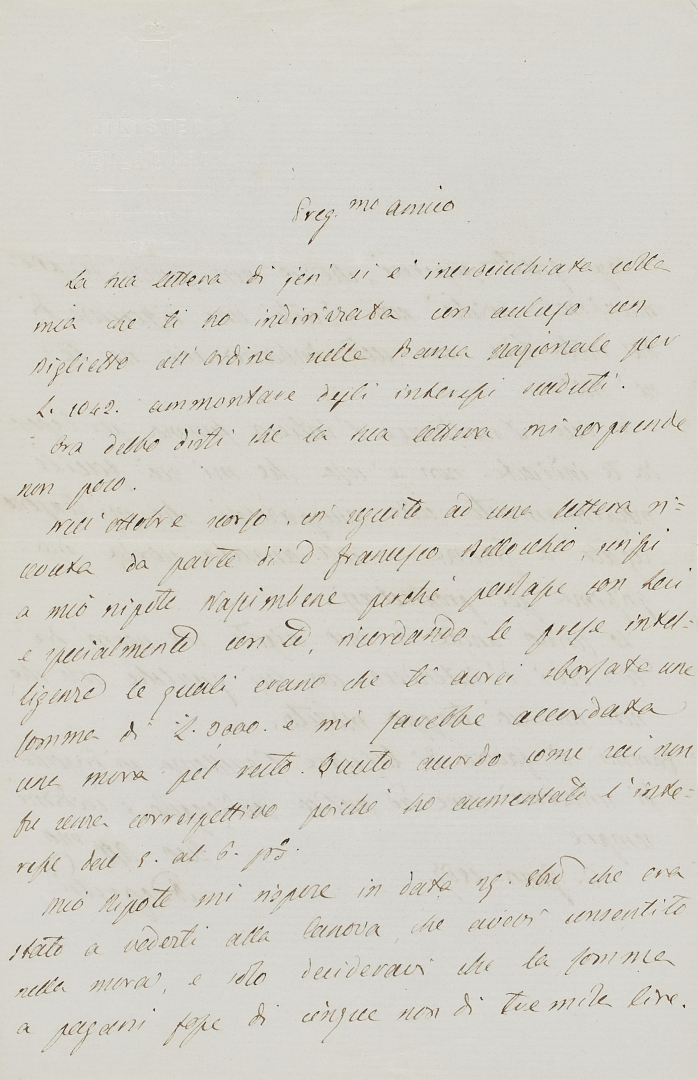 Preg.mo amico
La tua lettera di jeri si è incrocicchiata colla
mia che ti ho indirizzata con acluso un
Biglietto all'ordine nella Banca Nazionale per
L. 1042. ammontare degli interessi scaduti.
Ora debbo dirti che la tua lettera mi sorprende
non poco.
Nell'ottobre scorso in seguito ad una lettera ri=
cevuta da parte di D Francesco Bellocchio, scrissi
a mio nipote Rapimbene perché parlasse con Loci
e specialmente con te, ricordando le prese intel=
ligenze le quali erano che ti avrei sborsata una
somma di L. 3000. e mi sarebbe accordata
una mora pel resto. Questo accordo come sai non
fu senza correspettivo poiché ho aumentato l'inte=
resse dal 5. al 6. p%.
Mio Nipote mi rispose in data 25. 8bre che era
stato a vederti alla Canova, che avevi consentito
nella mora, e solo desideravi che la somma
a pagarsi fosse di cinque non di tre mila lire.